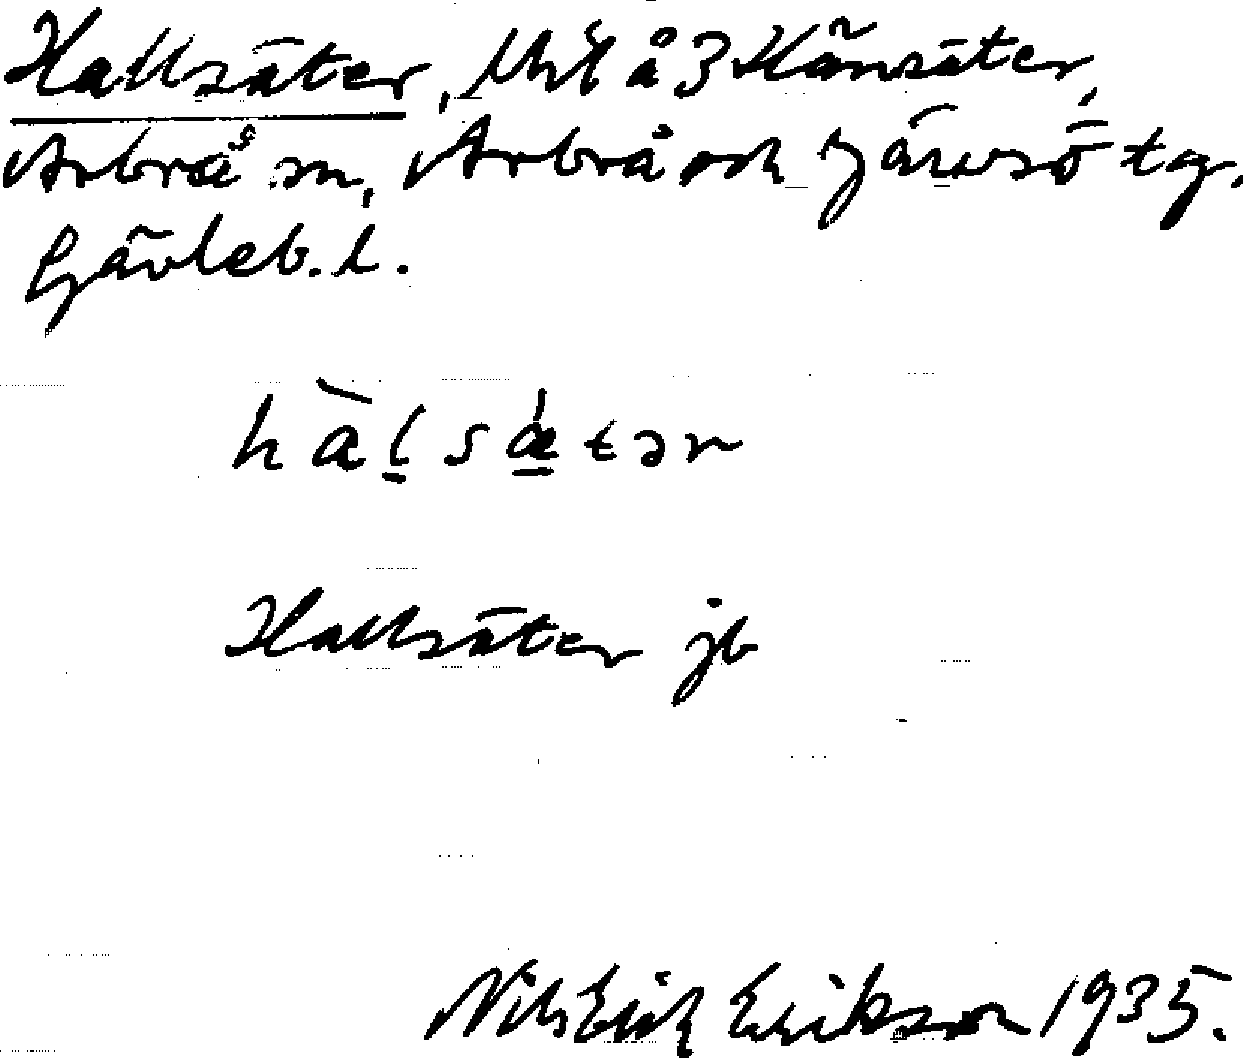 Hallsäter, Uhl å 3 Känsäter,
Arbrå sn, Arbrå och Järvsö tg,
Gävleb. l.
hàl̠sǽ̠tər
Hallsäter jb
Nils Erik Erikson 1935.